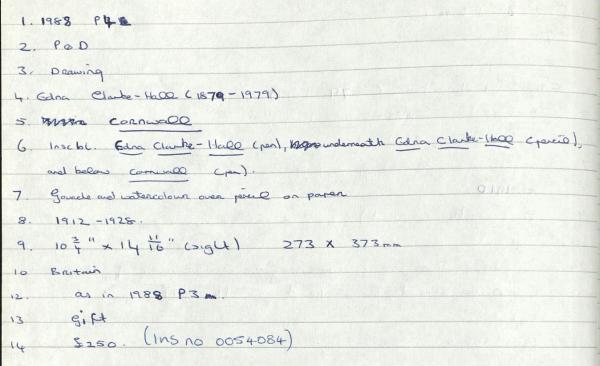 1. 1988 P4
2. P&D
3. Drawing
4. Edna Clarke-Hall (1879-1979)
5. Cornwall
6. Inscbl. Edna Clarke-Hall (pen), underneath Edna Clarke-Hall (pencil),
and below Cornwall (pen).
7 Gouache and watercolour over pencil on paper
8. 1912-1928.
9. 10 3/4" x 14 11/16" (sight) 273 x 373mm
10 Britain
12. as in 1988 P3
13 gift
14 £250. (Ins no 0054084)